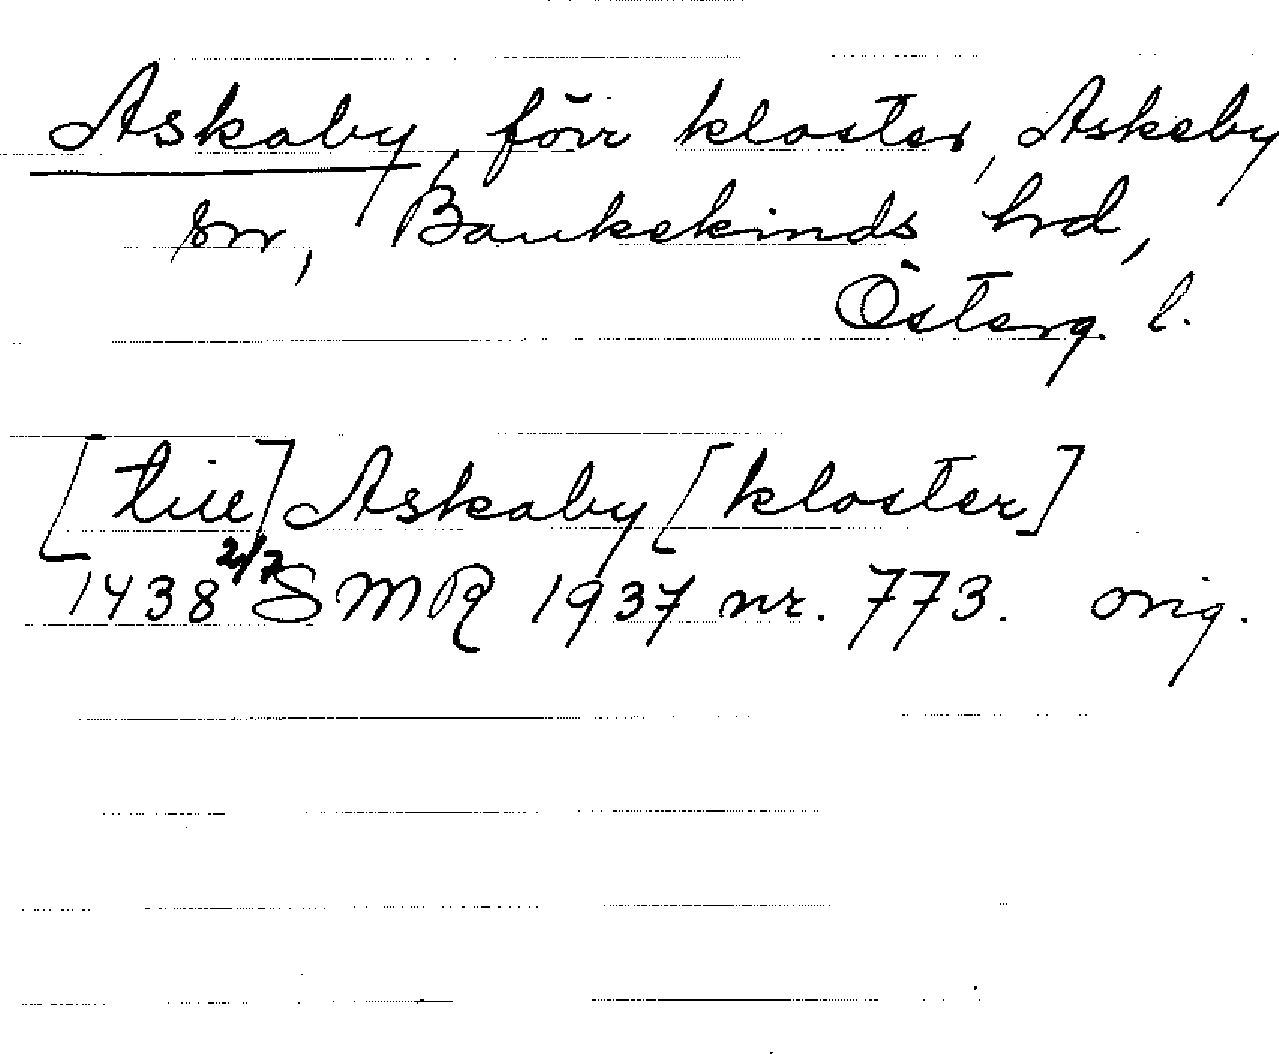 Askaby, förr kloster, Askeby
sn, Bankekinds hd,
Österg. l.
[till] Askaby [kloster]
1438 2/7 SMR 1937 nr. 773. orig.